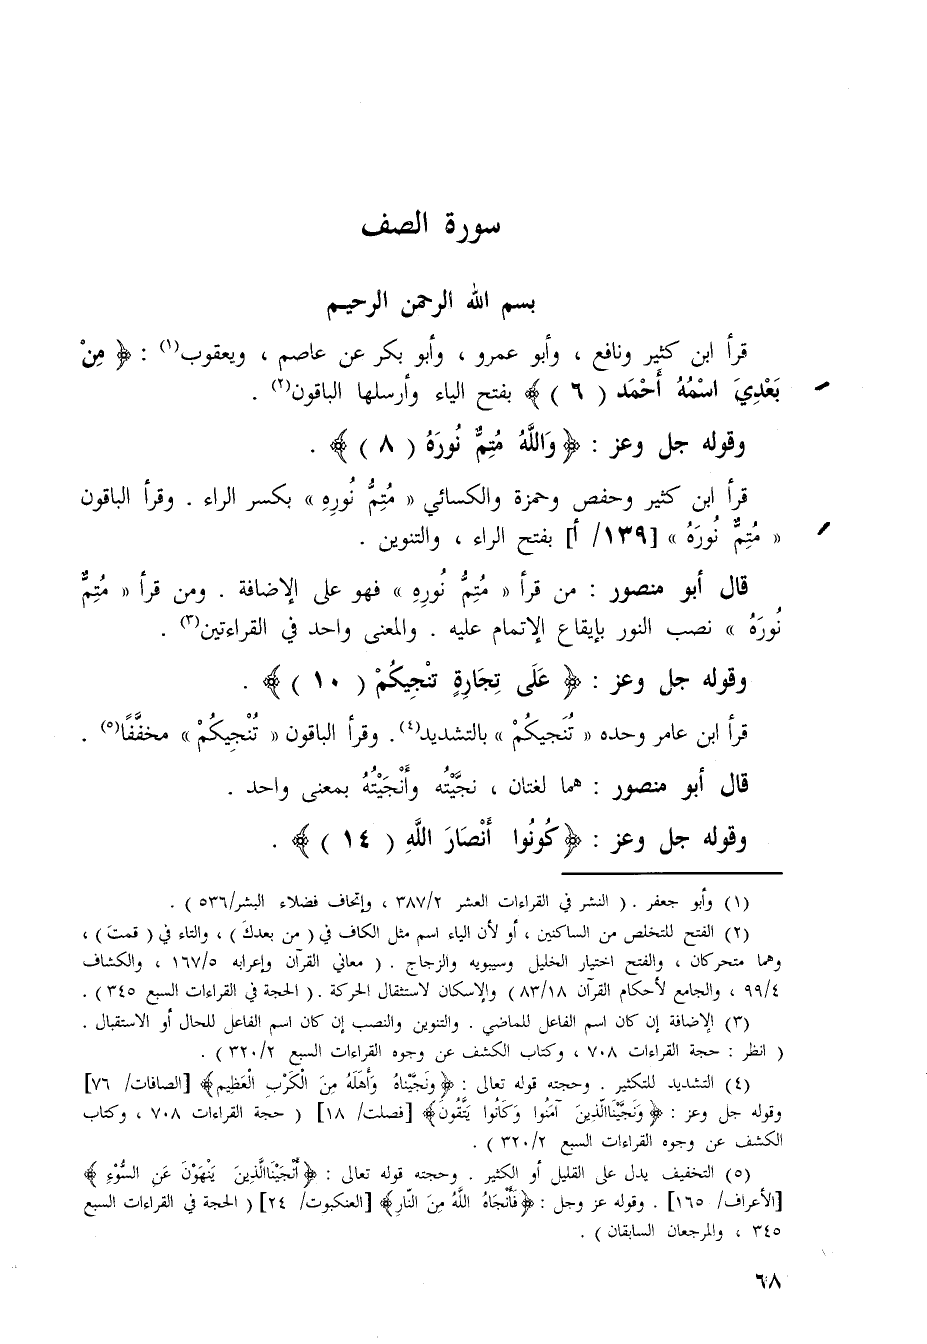 سورة الصف
بسم الله الرحمن الرحيم
قرأ ابن كثير ونافع ، وأبو عمرو ، وأبو بكر عن عاصم ، ويعقوب(١) : ﴿ مِنْ
بَعْدِيَ اسْمُهُ أَحْمَد ( ٦ ) ﴾ بفتح الياء وأرسلها الباقون(٢) .
وقوله جل وعز : ﴿ وَاللَّهُ مُتِمٌّ نُورَهُ ( ٨ ) ﴾ .
قرأ ابن كثير وحفص وحمزة والكسائي « مُتِمُّ نُورِهِ » بكسر الراء . وقرأ الباقون
« مُتِمٌّ نُورَهُ » [١٣٩/ أ] بفتح الراء ، والتنوين .
قال أبو منصور : من قرأ « مُتِمُّ نُورِهِ » فهو على الإضافة . ومن قرأ « مُتِمٌّ
نُورَهُ » نصب النور بإيقاع الإتمام عليه . والمعنى واحد في القراءتين(٣) .
وقوله جل وعز : ﴿ عَلَى تِجَارَةٍ تنْجِيكُمْ ( ١٠ ) ﴾ .
قرأ ابن عامر وحده « تُنَجيكُمْ » بالتشديد(٤). وقرأ الباقون « تُنْجِيكُمْ » مخفَّفًا(٥) .
قال أبو منصور : هما لغتان ، نجَّيْتُه وأَنْجَيْتُهُ بمعنى واحد .
وقوله جل وعز : ﴿ كُونُوا أَنْصَارَ اللَّهِ ( ١٤ ) ﴾ .
(١) وأبو جعفر . ( النشر في القراءات العشر ٣٨٧/٢ ، وإتحاف فضلاء البشر/٥٣٦ ) .
(٢) الفتح للتخلص من الساكنين ، أو لأن الياء اسم مثل الكاف في ( من بعدكَ ) ، والتاء في ( قمتَ ) ،
وهما متحركان ، والفتح اختيار الخليل وسيبويه والزجاج . ( معاني القرآن وإعرابه ١٦٧/٥ ، والكشاف
٩٩/٤ ، والجامع لأحكام القرآن ٨٣/١٨ ) والإسكان لاستثقال الحركة . ( الحجة في القراءات السبع ٣٤٥ ) .
(٣) الإضافة إن كان اسم الفاعل للماضي . والتنوين والنصب إن كان اسم الفاعل للحال أو الاستقبال .
( انظر : حجة القراءات ٧٠٨ ، وكتاب الكشف عن وجوه القراءات السبع ٣٢٠/٢ ) .
(٤) التشديد للتكثير . وحجته قوله تعالى : ﴿ وَنَجَّيْنَاهُ وَأَهْلَهُ مِنَ الْكَرْبِ الْعَظِيمِ﴾ [الصافات/ ٧٦]
وقوله جل وعز : ﴿ وَنَجَّيْنَاالَّذِينَ آمَنُوا وَكَانُوا يَتَّقُونَ﴾ [فصلت/ ١٨] ( حجة القراءات ٧٠٨ ، وكتاب
الكشف عن وجوه القراءات السبع ٣٢٠/٢ ) .
(٥) التخفيف يدل على القليل أو الكثير . وحجته قوله تعالى : ﴿أَنْجَيْنَاالَّذِينَ يَنْهَوْنَ عَنِ السُّوْءِ ﴾
[الأعراف/ ١٦٥] . وقوله عز وجل : ﴿فَأَنْجَاهُ اللَّهُ مِنَ النَّارِ﴾ [العنكبوت/ ٢٤] ( الحجة في القراءات السبع
٣٤٥ ، والمرجعان السابقان ) .
٦٨